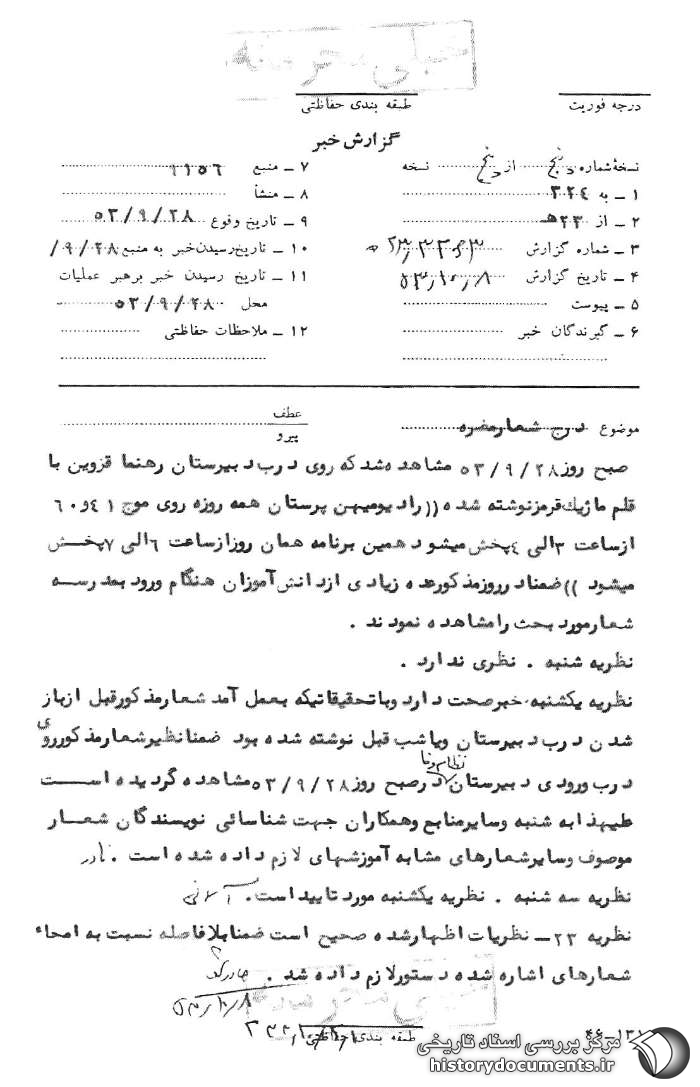 خیلی محرمانه
درجه فوریت
طبقه بندی حفاظتی
گزارش خبر
نسخهٔ شماره پنج از پنج نسخه
۱ ـ به ۳۲٤
۲ ـ از ۲۳هـ
۳ ـ شماره گزارش
۴ ـ تاریخ گزارش ۵۳/۱۰/۸
۵ ـ پیوست
۶ ـ گیرندگان خبر
۷ ـ منبع
۸ ـ منشأ
۹ ـ تاریخ وقوع ۵۳/۹/۲۸
۱۰ ـ تاریخ رسیدن خبر به منبع ۹/۲۸/
۱۱ ـ تاریخ رسیدن خبر برهبر عملیات
محل ۵۳/۹/۲۸
۱۲ ـ ملاحظات حفاظتی
موضوع درج شعار مضره
عطف
پیرو
صبح روز ۵۳/۹/۲۸ مشاهده شد که روی درب دبیرستان رهنما قزوین با
قلم ماژیک قرمز نوشته شده ((رادیو میهن پرستان همه روزه روی موج ٤۱ و ۶۰
از ساعت ۳ الی ٤ پخش میشود همین برنامه همان روز از ساعت ۶ الی ۷ پخش
میشود )) ضمنا در روز مذکور عده زیادی از دانش آموزان هنگام ورود بمدرسه
شعار مورد بحث را مشاهده نمودند .
نظریه شنبه . نظری ندارد .
نظریه یکشنبه . خبر صحت دارد و با تحقیقاتیکه بعمل آمد شعار مذکور قبل از باز
شدن درب دبیرستان و یا شب قبل نوشته شده بود ضمنا نظیر شعار مذکور روی
درب ورودی دبیرستان نظام وفا در صبح روز ۵۳/۹/۲۸ مشاهده گردیده است
علیهذا به شنبه و سایر منابع و همکاران جهت شناسائی نویسندگان شعار
موصوف و سایر شعارهای مشابه آموزشهای لازم داده شده است . نادر
نظریه سه شنبه . نظریه یکشنبه مورد تایید است .
نظریه ۲۳ـ نظریات اظهار شده صحیح است ضمنا بلافاصله نسبت به امحاء
شعارهای اشاره شده دستور لازم داده شد .
خیلی محرمانه
طبقه بندی حفاظتی
مرکز بررسی اسناد تاریخی
historydocuments.ir